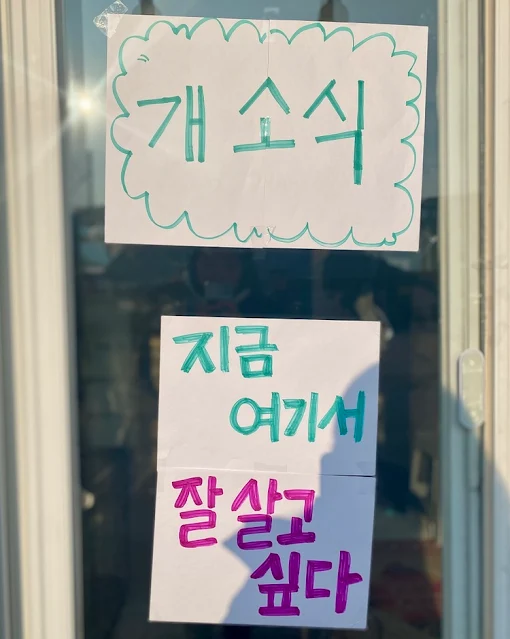 개소식
지금
여기서
잘 살고
싶다